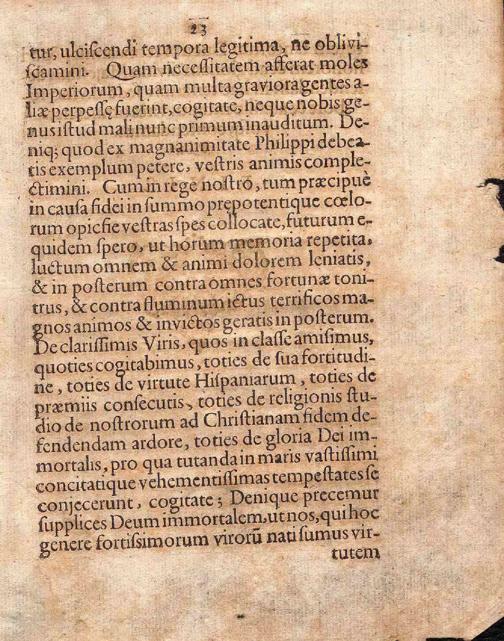 23
tur, ulciscendi tempora legitima, ne oblivi-
scamini. Quam necessitatem afferat moles
Imperiorum, quam multa graviora gentes a-
liæ perpessę fuerint, cogitate, neque nobis ge-
nus istud mali nunc primum inauditum. De-
niq; quod ex magnanimitate Philippi debea-
tis exemplum petere, vestris animis comple-
ctimini. Cum in rege nostro, tum præcipuè
in causa fidei in summo prepotentique cœlo-
rum opicfie vestras spes collocate, futurum e-
quidem spero, ut horum memoria repetita,
luctum omnem & animi dolorem leniatis,
& in posterum contra omnes fortunæ toni-
trus, & contra fluminum ictus terrificos ma-
gnos animos & invictos geratis in posterum.
De clarissimis Viris, quos in classe amisimus,
quoties cogitabimus, toties de sua fortitudi-
ne, toties de virtute Hispaniarum, toties de
præmiis consecutis, toties de religionis stu-
dio de nostrorum ad Christianam fidem de-
fendendam ardore, toties de gloria Dei im-
mortalis, pro qua tutanda in maris vastissimi
concitatique vehementissimas tempestates se
conjecerunt, cogitate; Denique precemur
supplices Deum immortalem, ut nos, qui hoc
genere fortissimorum virorũ nati sumus vir-
tutem